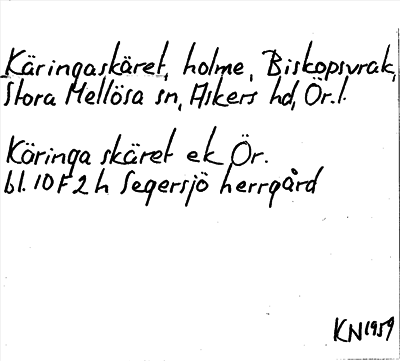 Käringaskäret, holme, Biskopsvrak,
Stora Mellösa sn, Askers hd, Ör.l.
Käringa skäret ek Ör.
bl. 10F2h Segersjö herrgård
KN 1959